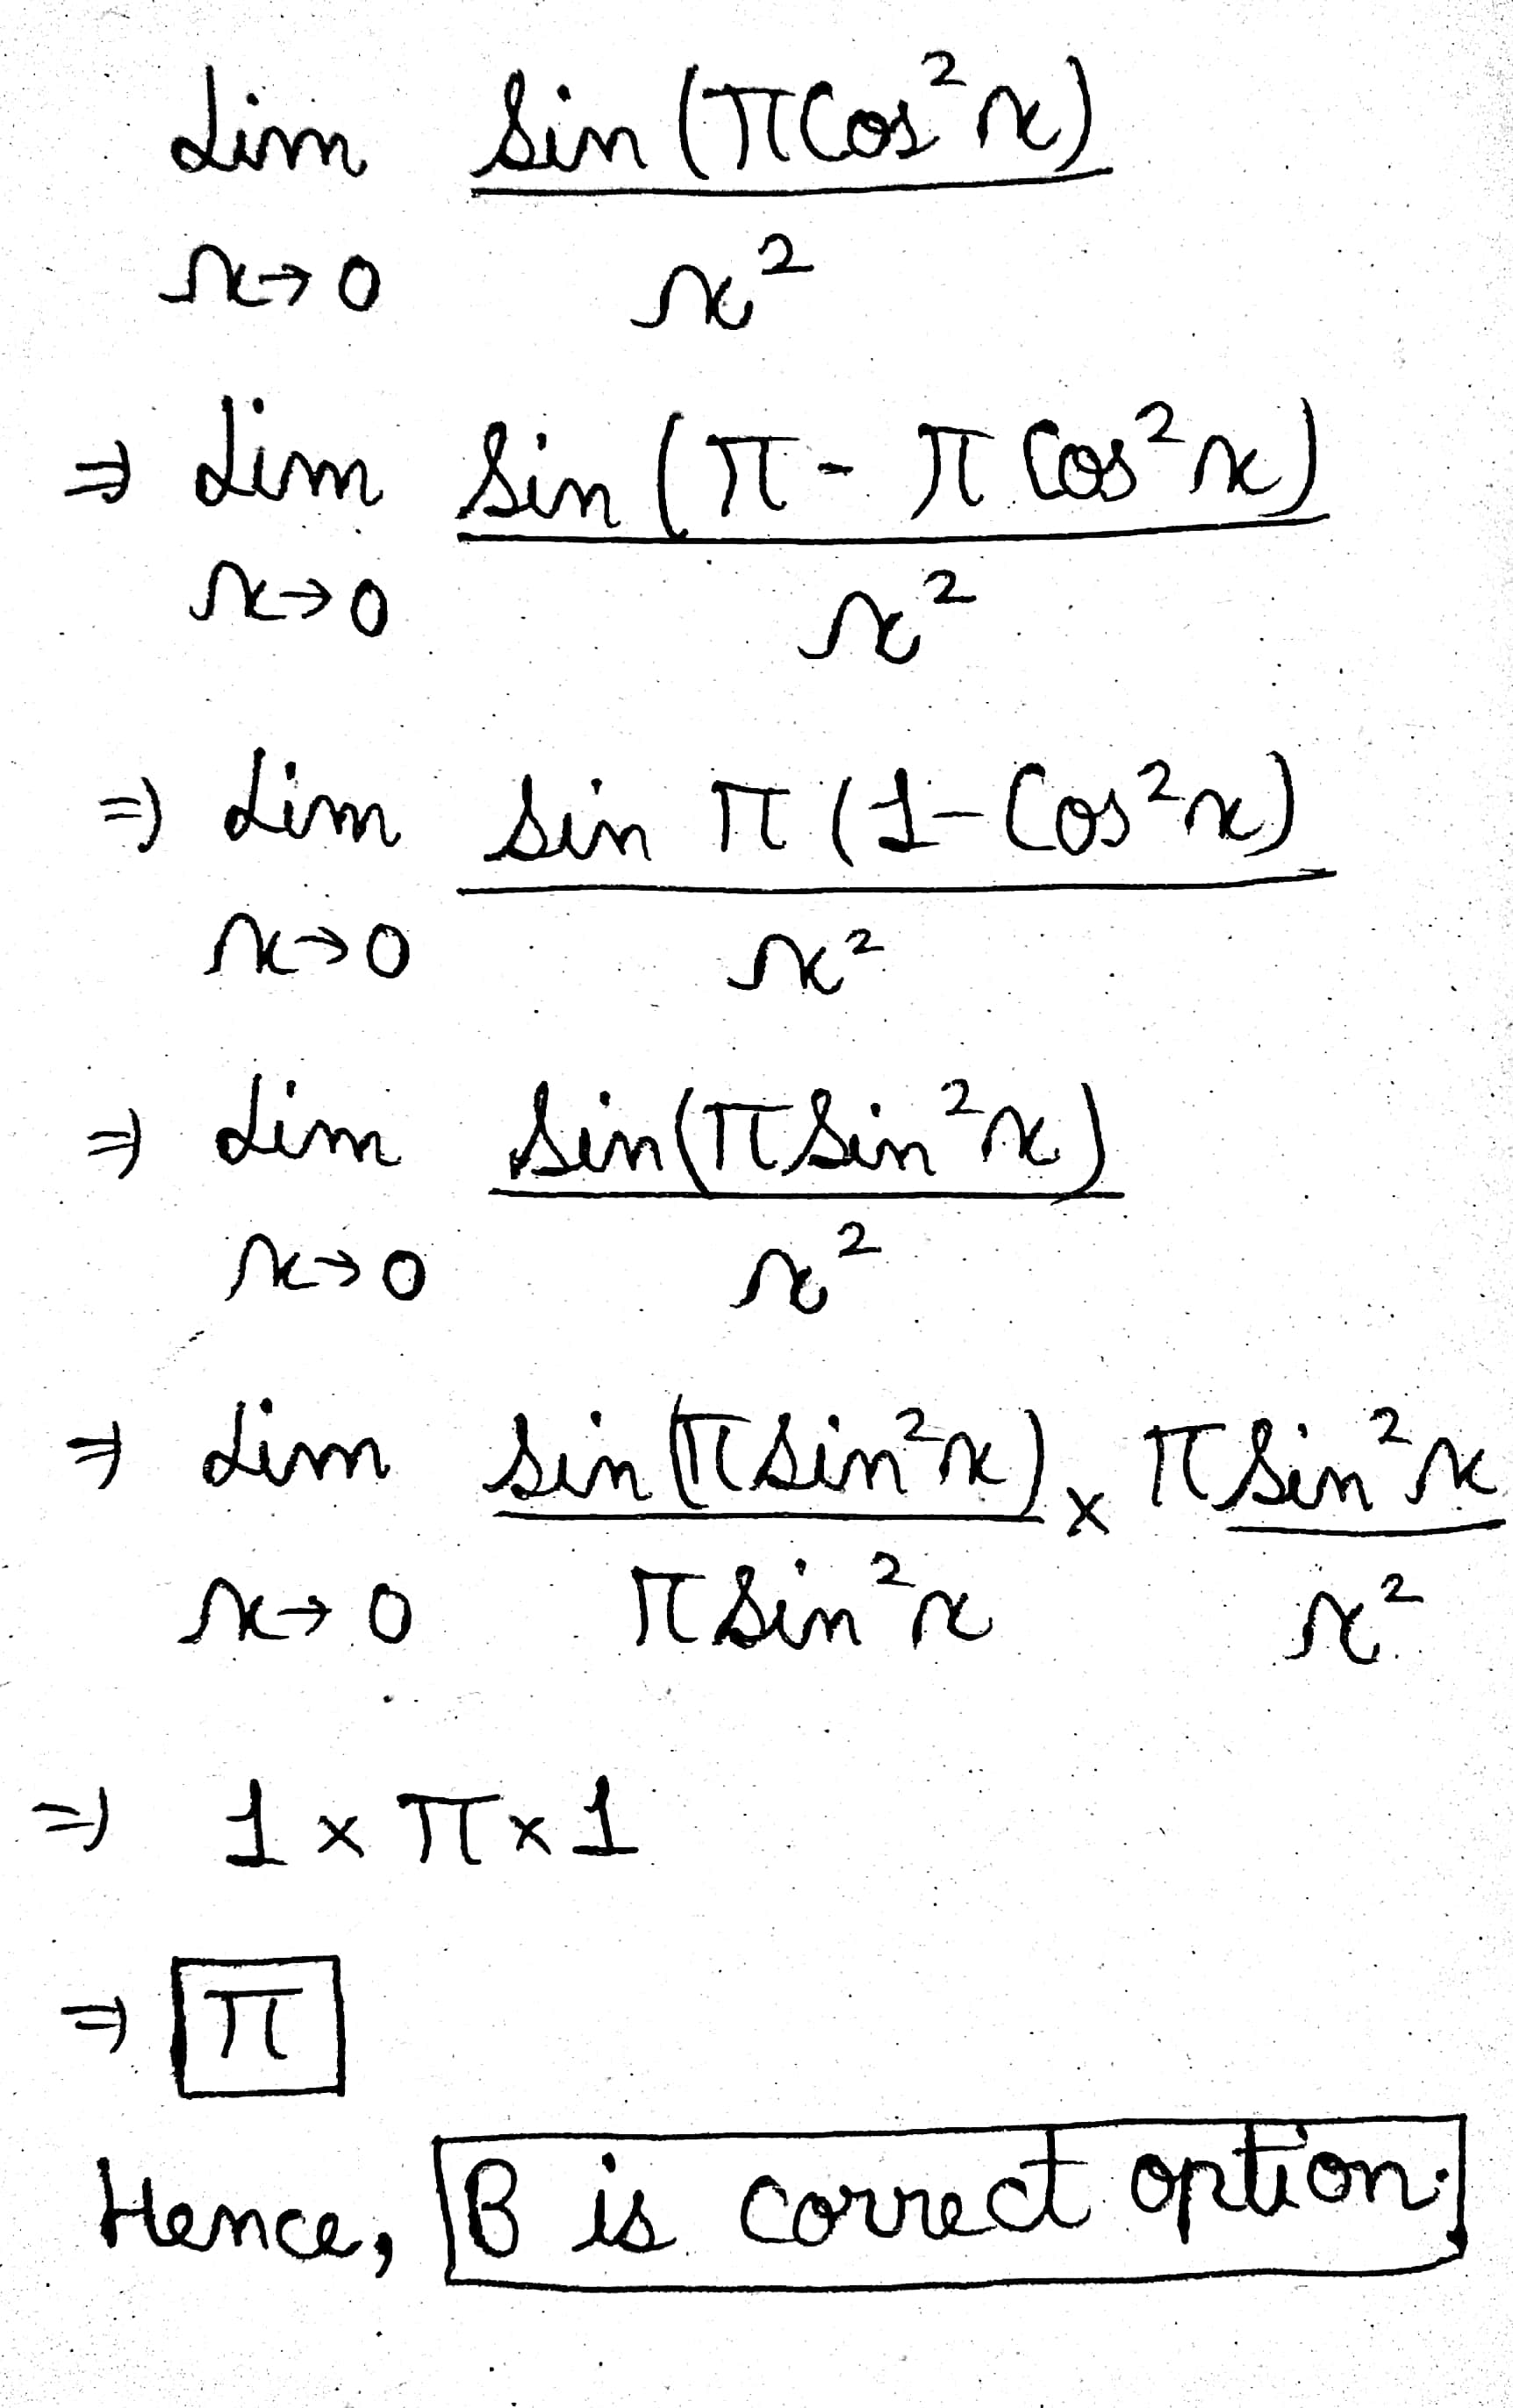 Lim Sin (π Cos²x)
x→0 x²
⇒ Lim Sin (π - π Cos²x)
x→0 x²
⇒ Lim Sin π (1 - Cos²x)
x→0 x²
⇒ Lim Sin(π Sin²x)
x→0 x²
⇒ Lim Sin(π Sin²x) × π Sin²x
x→0 π Sin²x x²
⇒ 1 × π × 1
⇒ π
Hence, B is correct option.